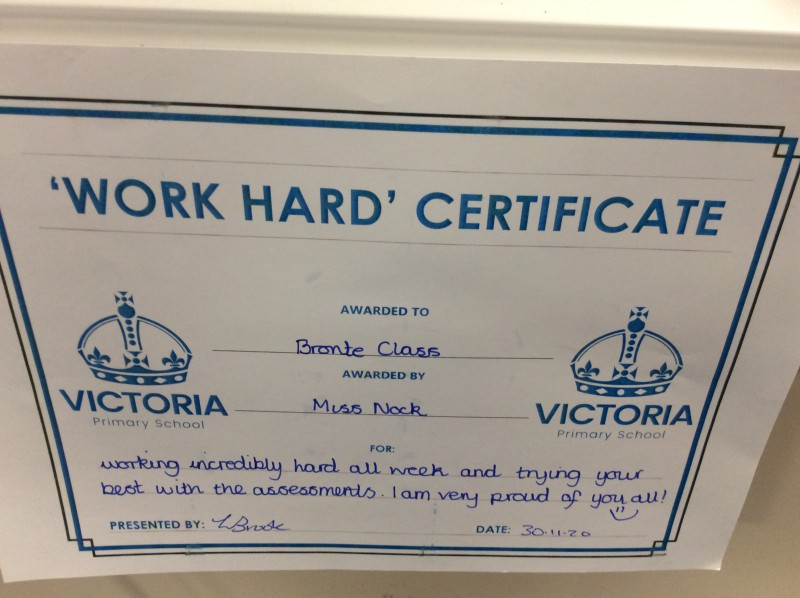 'WORK HARD' CERTIFICATE
AWARDED TO
Bronte Class
AWARDED BY
Miss Nock
VICTORIA
Primary School
VICTORIA
Primary School
FOR:
working incredibly hard all week and trying your
best with the assessments. I am very proud of you all!
PRESENTED BY:
DATE: 30.11.20